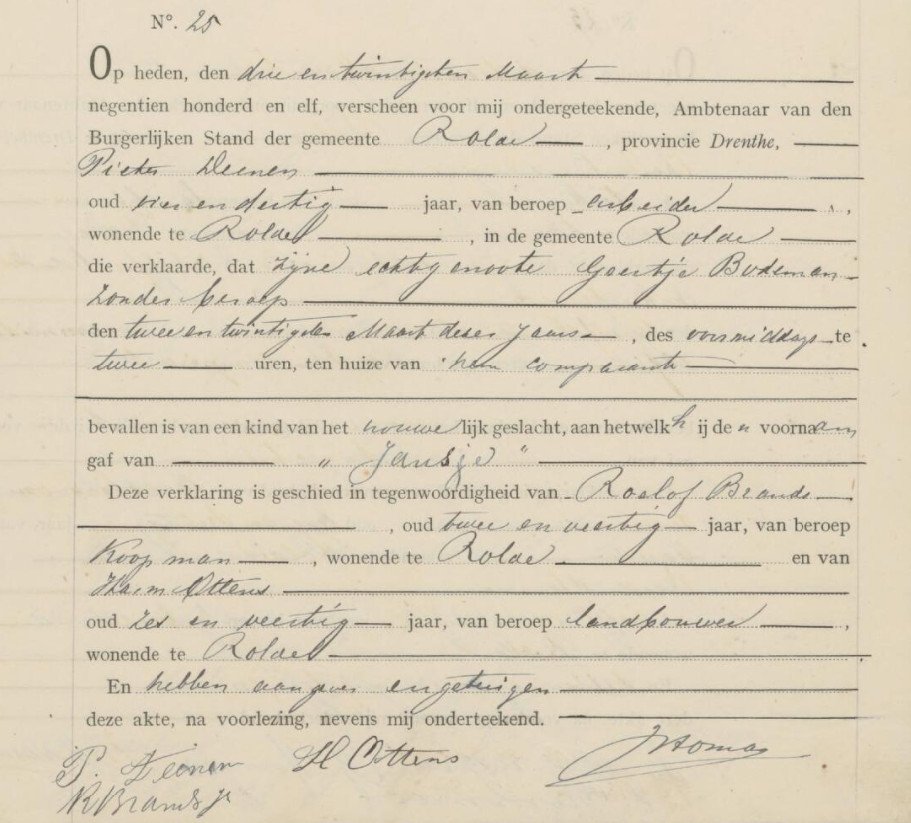 N°. 25
Op heden, den drie en twintigsten Maart
negentien honderd en elf, verscheen voor mij ondergeteekende, Ambtenaar van den
Burgerlijken Stand der gemeente Rolde, provincie Drenthe,
Pieter Deenen
oud vier en dertig jaar, van beroep arbeider,
wonende te Rolde, in de gemeente Rolde
die verklaarde, dat zijne echtgenoote Geertje Bodeman
zonder beroep
den twee en twintigsten Maart dezes jaars, des voormiddags te
twee uren, ten huize van hem comparant
bevallen is van een kind van het vrouwelijk geslacht, aan hetwelk hij de n voornaam
gaf van " Jansje "
Deze verklaring is geschied in tegenwoordigheid van Roelof Brands
, oud twee en veertig jaar, van beroep
Koopman, wonende te Rolde en van
Harm Ottens
oud zes en veertig jaar, van beroep landbouwer,
wonende te Rolde
En hebben aangever en getuigen
deze akte, na voorlezing, nevens mij onderteekend.
P. Deenen H Ottens
R Brands jr